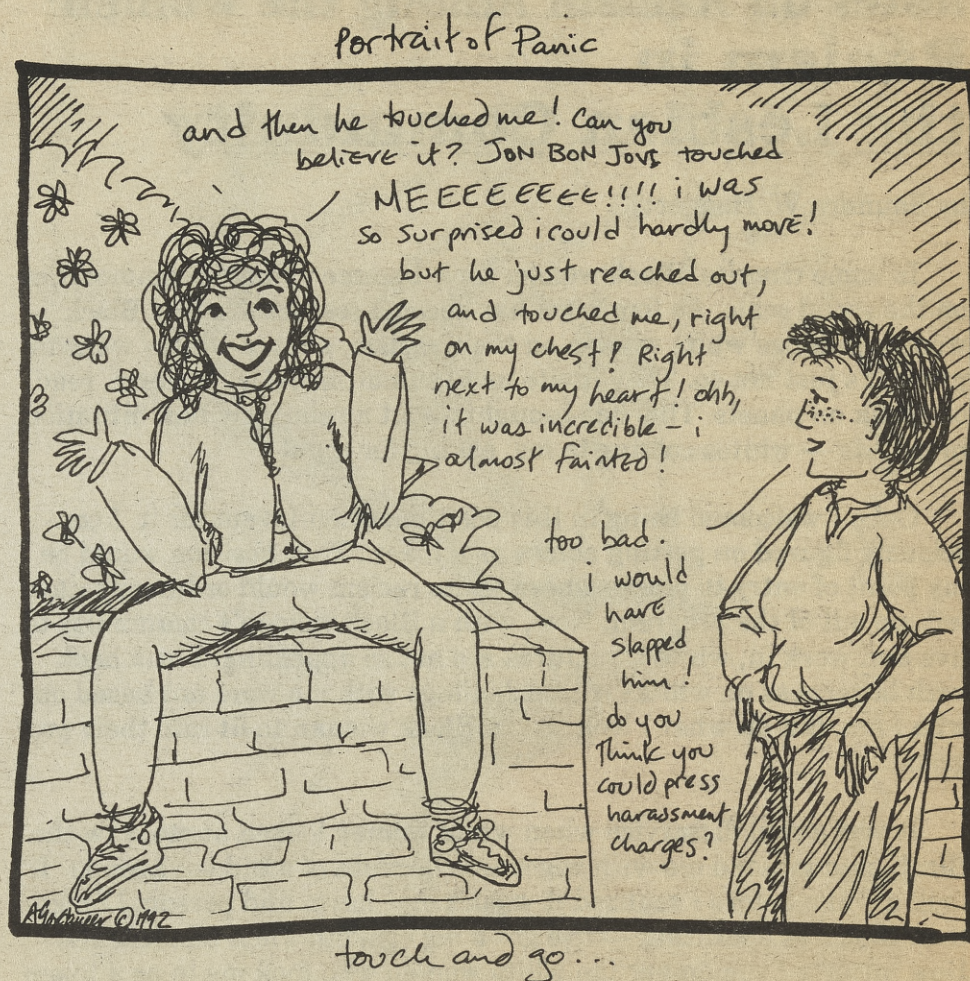 Portrait of Panic
and then he touched me! Can you
believe it? JON BON JOVI touched
MEEEEEEEEE!!!! i was
so surprised i could hardly move!
but he just reached out,
and touched me, right
on my chest! Right
next to my heart! ohh,
it was incredible - i
almost fainted!
too bad.
i would
have
slapped
him!
do you
Think you
could press
harassment
charges?
© 1992
touch and go...